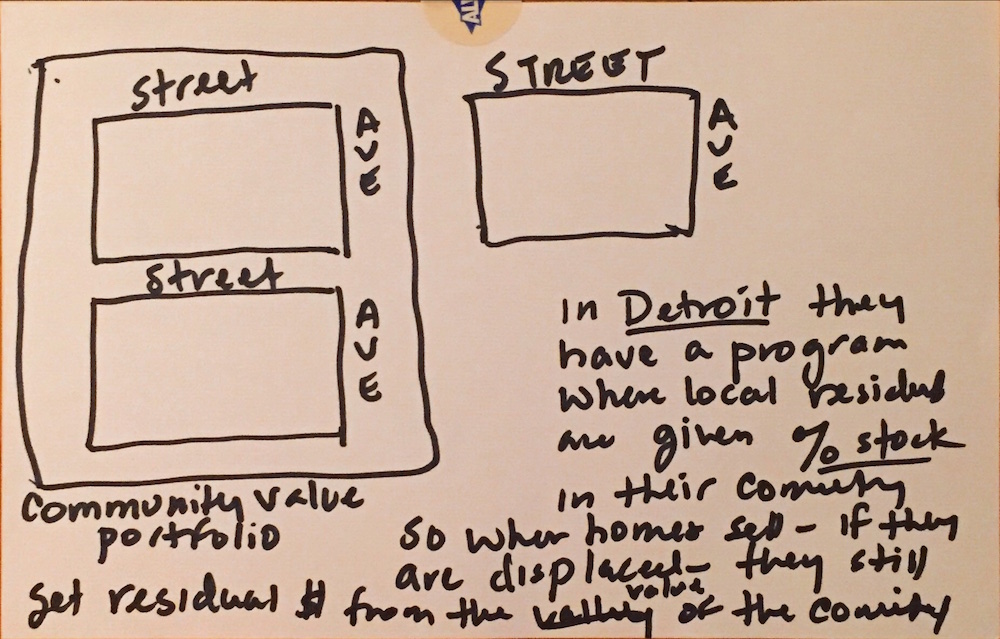 Street
AVE
Street
AVE
Community value
portfolio
STREET
AVE
in Detroit they
have a program
where local residents
are given % stock
in their comunity
so when homes sell - if they
are displaced - they still
get residual $ from the value of the comunity